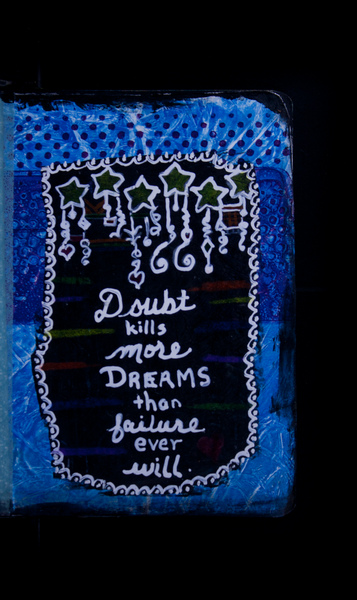 Doubt
kills
more
DREAMS
than
failure
ever
will.